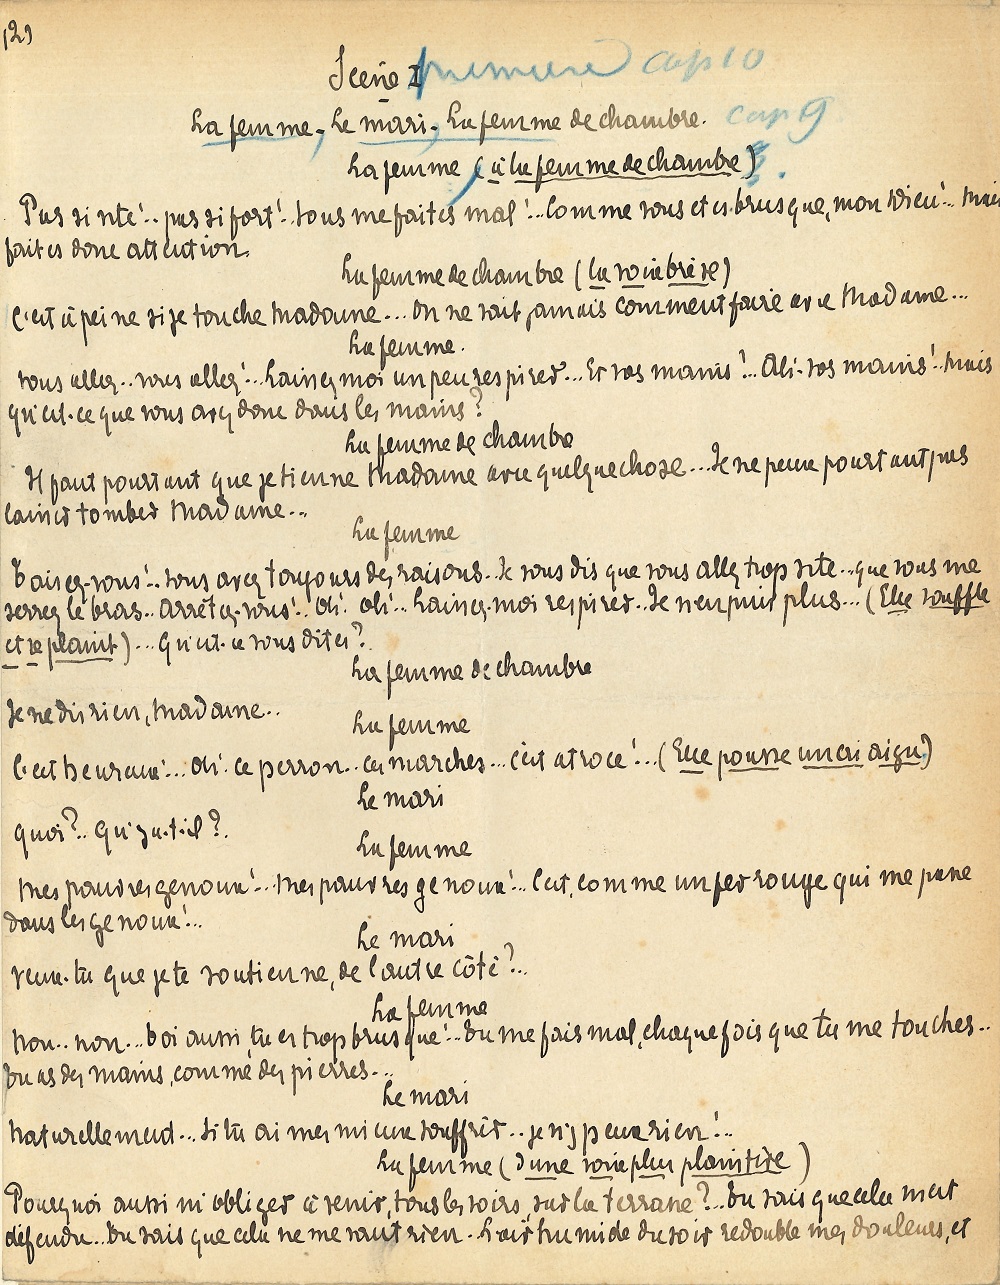 (2)
Scène I première cap 10
La femme, Le mari, La femme de chambre. cap 9
La femme (à la femme de chambre)
Pas si vite!.. pas si fort!.. vous me faites mal!... Comme vous êtes brusque, mon Dieu!.. Mais
faites donc attention.
La femme de chambre (la voix brève)
C'est à peine si je touche Madame... On ne sait jamais comment faire avec Madame...
La femme.
vous allez.. vous allez!... Laissez moi un peu respirer... Et vos mains!... Ah!. vos mains!.. Mais
qu'est-ce que vous avez donc dans les mains?
La femme de chambre
Il faut pourtant que je tienne Madame avec quelque chose... Je ne peux pourtant pas
laisser tomber Madame...
La femme
Taisez-vous!.. vous avez toujours des raisons.. Je vous dis que vous allez trop vite.. que vous me
serrez le bras.. Arrêtez-vous!.. oh!. oh!.. Laissez-moi respirer.. Je n'en puis plus... (Elle souffle
et se plaint)... Qu'est-ce vous dites?
La femme de chambre
Je ne dis rien, Madame..
La femme
C'est heureux!... oh!. ce perron.. ces marches... c'est atroce!... (Elle pousse un cri aigu)
Le mari
quoi?.. Qu'y a-t-il?.
La femme
Mes pauvres genoux!.. Mes pauvres genoux!... C'est, comme un fer rouge qui me passe
dans les genoux!...
Le mari
veux-tu que je te soutienne, de l'autre côté?...
La femme
Non.. non... Toi aussi, tu es trop brusque!.. Tu me fais mal, chaque fois que tu me touches..
Tu as des mains, comme des pierres...
Le mari
Naturellement... Si tu aimes mieux souffrir.. je n'y peux rien!..
La femme (d'une voix plus plaintive)
Pourquoi aussi m'obliger à venir, tous les soirs, sur la terrasse?.. Tu sais que cela m'est
défendu.. Tu sais que cela ne me vaut rien.. L'air humide du soir redouble mes douleurs, et